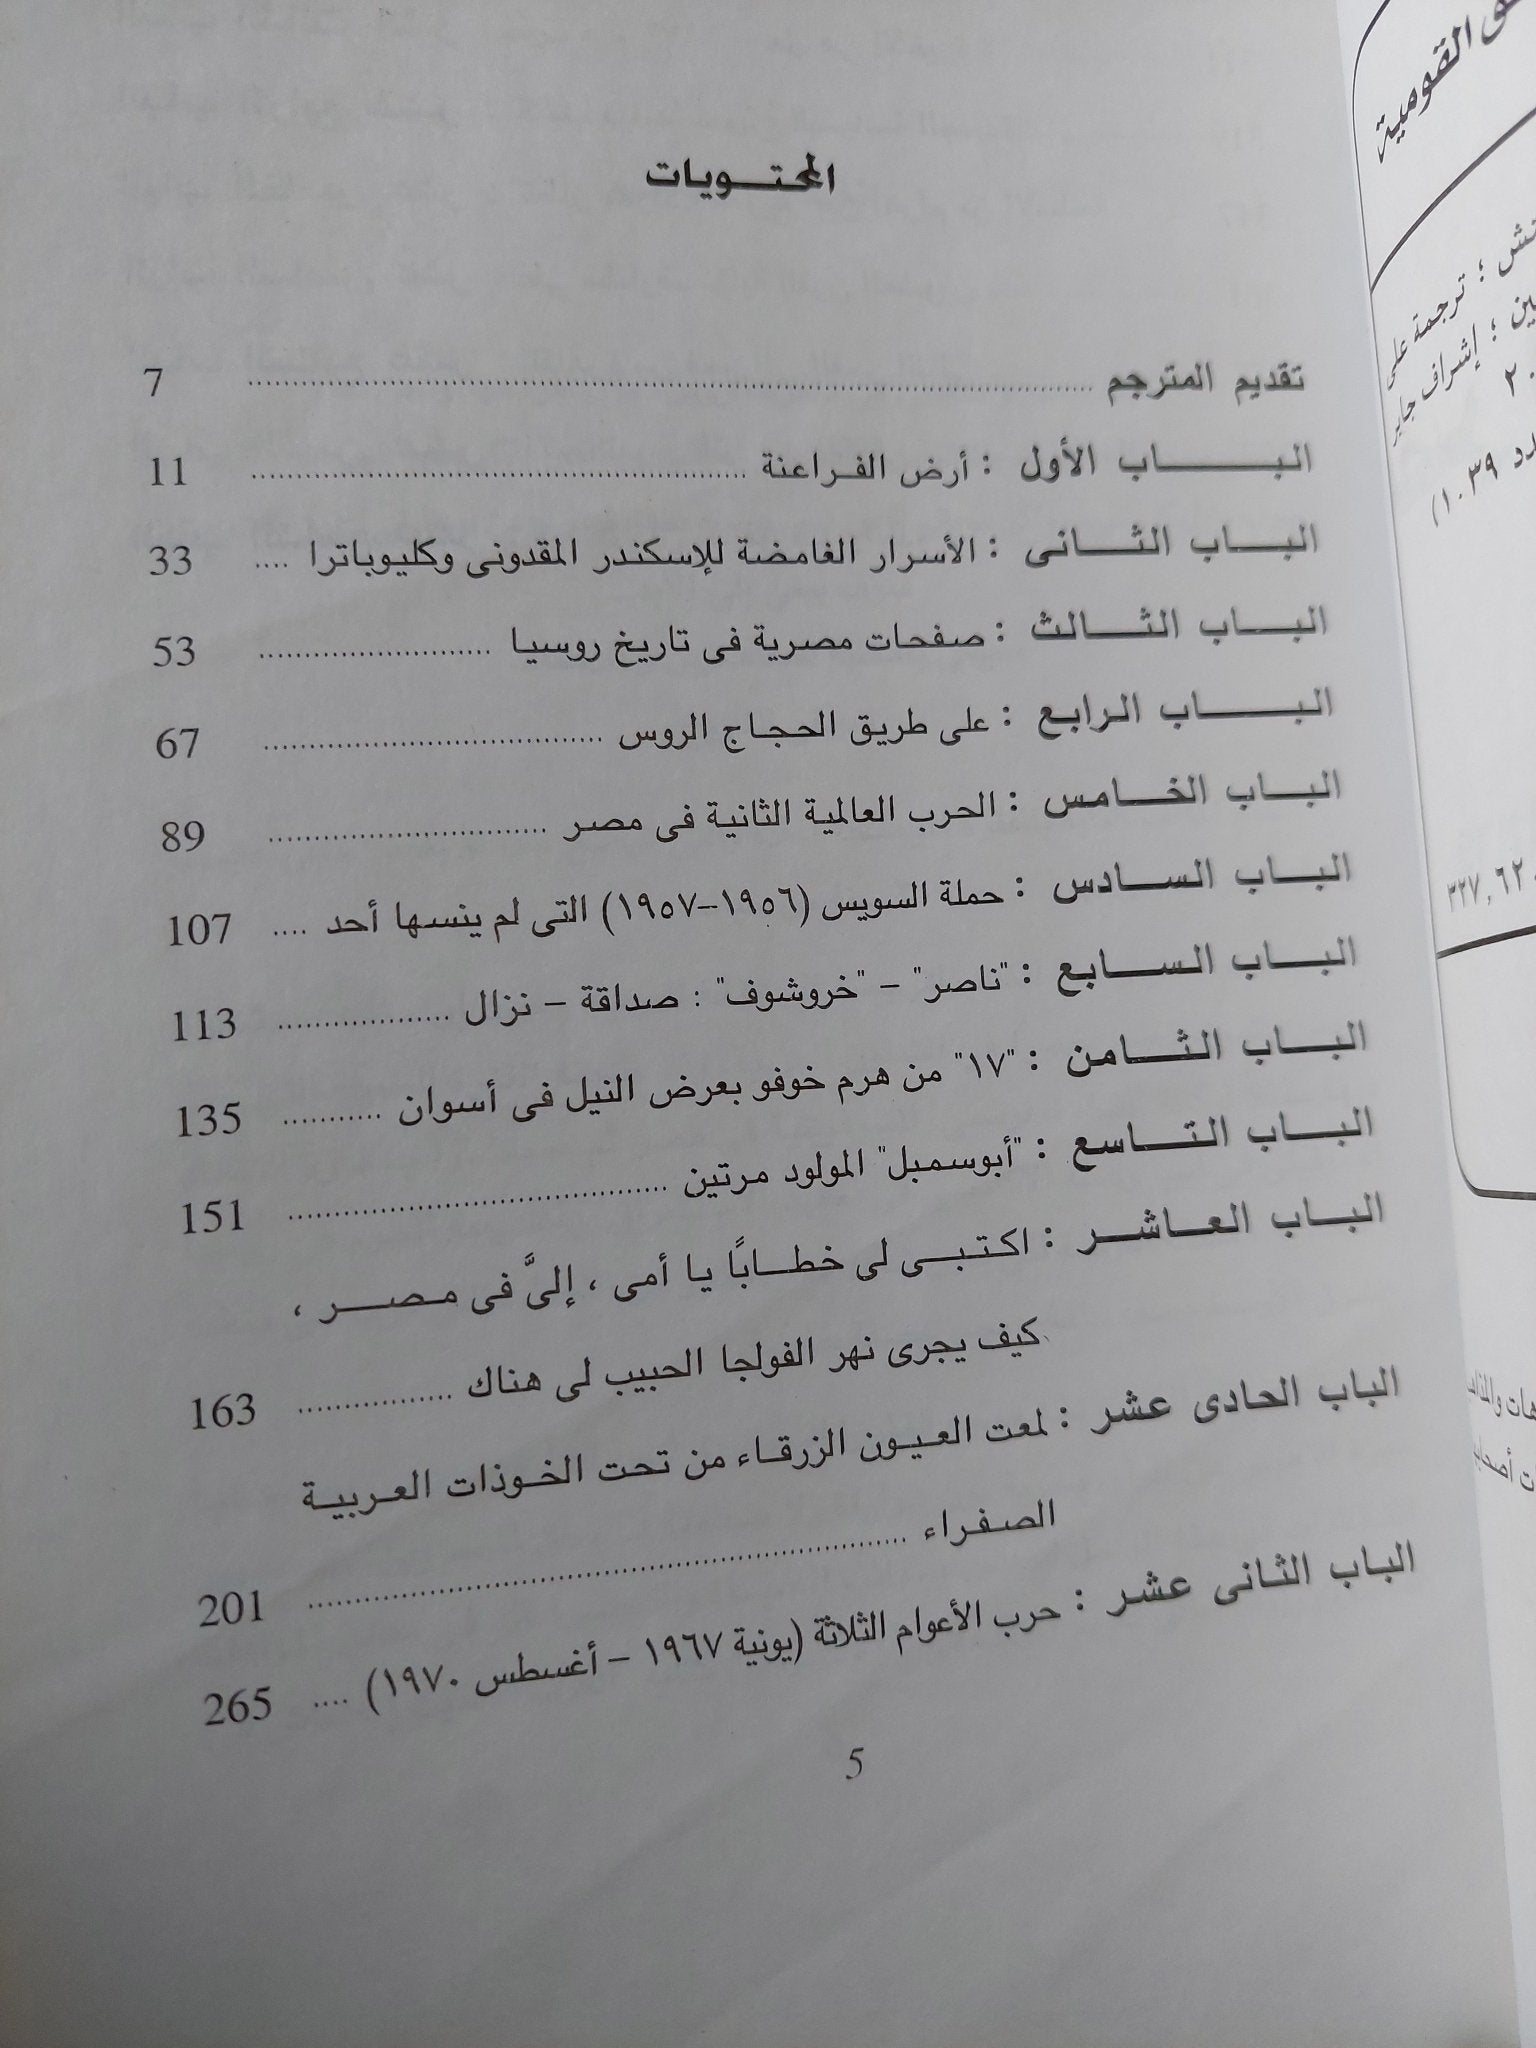 المحتويات
تقديم المترجم ........ 7
الباب الأول : أرض الفراعنة ........ 11
الباب الثانى : الأسرار الغامضة للإسكندر المقدونى وكليوباترا .... 33
الباب الثالث : صفحات مصرية فى تاريخ روسيا ........ 53
الباب الرابع : على طريق الحجاج الروس ........ 67
الباب الخامس : الحرب العالمية الثانية فى مصر ........ 89
الباب السادس : حملة السويس (١٩٥٦–١٩٥٧) التى لم ينسها أحد .... 107
الباب السابع : "ناصر" – "خروشوف" : صداقة – نزال ........ 113
الباب الثامن : "١٧" من هرم خوفو بعرض النيل فى أسوان ........ 135
الباب التاسع : "أبوسمبل" المولود مرتين ........ 151
الباب العاشر : اكتبى لى خطابًا يا أمى ، إلىَّ فى مصر ،
كيف يجرى نهر الفولجا الحبيب لى هناك ........ 163
الباب الحادى عشر : لمعت العيون الزرقاء من تحت الخوذات العربية
الصفراء ........ 201
الباب الثانى عشر : حرب الأعوام الثلاثة (يونية ١٩٦٧ – أغسطس ١٩٧٠) .... 265
5
القومية
؛ ترجمة على
؛ إشراف جابر
١٠٣٩)
٣٢٧,٦٢